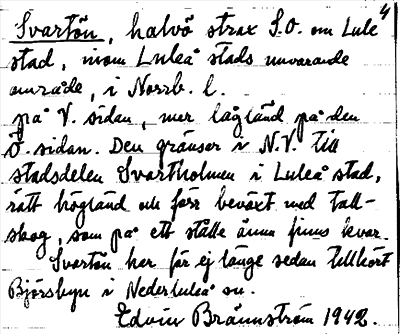 4
Svartön, halvö strax S.O. om Lule
stad, inom Luleå stads nuvarande
område, i Norrb. l.
på V. sidan, mer lågländ på den
Ö. sidan. Den gränser i N.V. till
stadsdelen Svartholmen i Luleå stad,
rätt högländ och förr beväxt med tall-
skog, som på ett ställe ännu finns kvar.
Svartön har för ej länge sedan tillhört
Björsbyn i Nederluleå sn.
Edvin Brännström 1942.